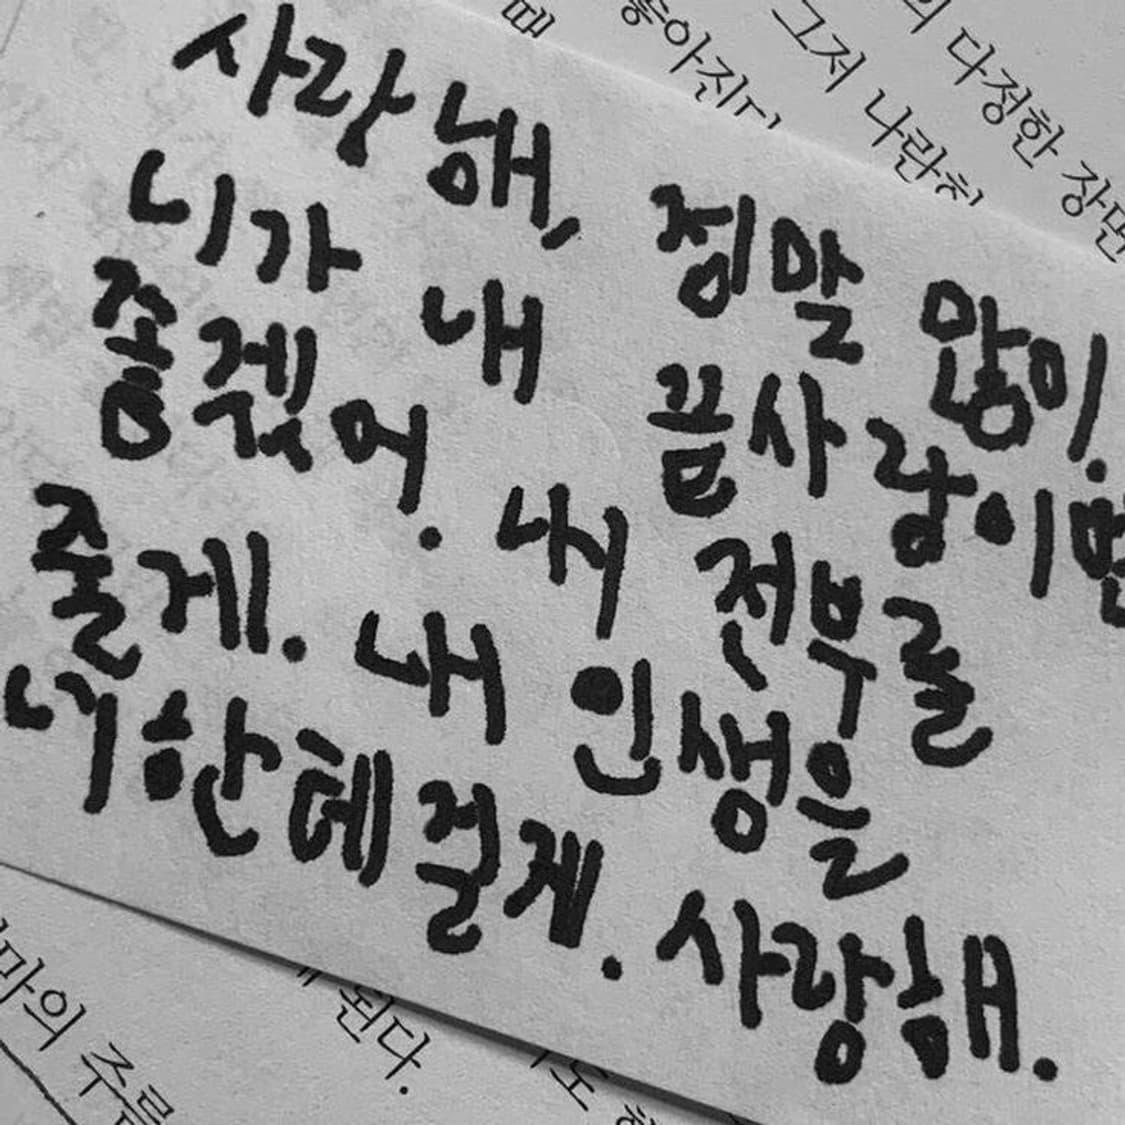 때
그저 나란히
의 다정한 장면
사랑해, 정말 많이.
니가 내 끝사랑이면
좋겠어. 내 전부를
줄게. 내 인생을
너한테 걸게. 사랑해.
된다.
마의 주름